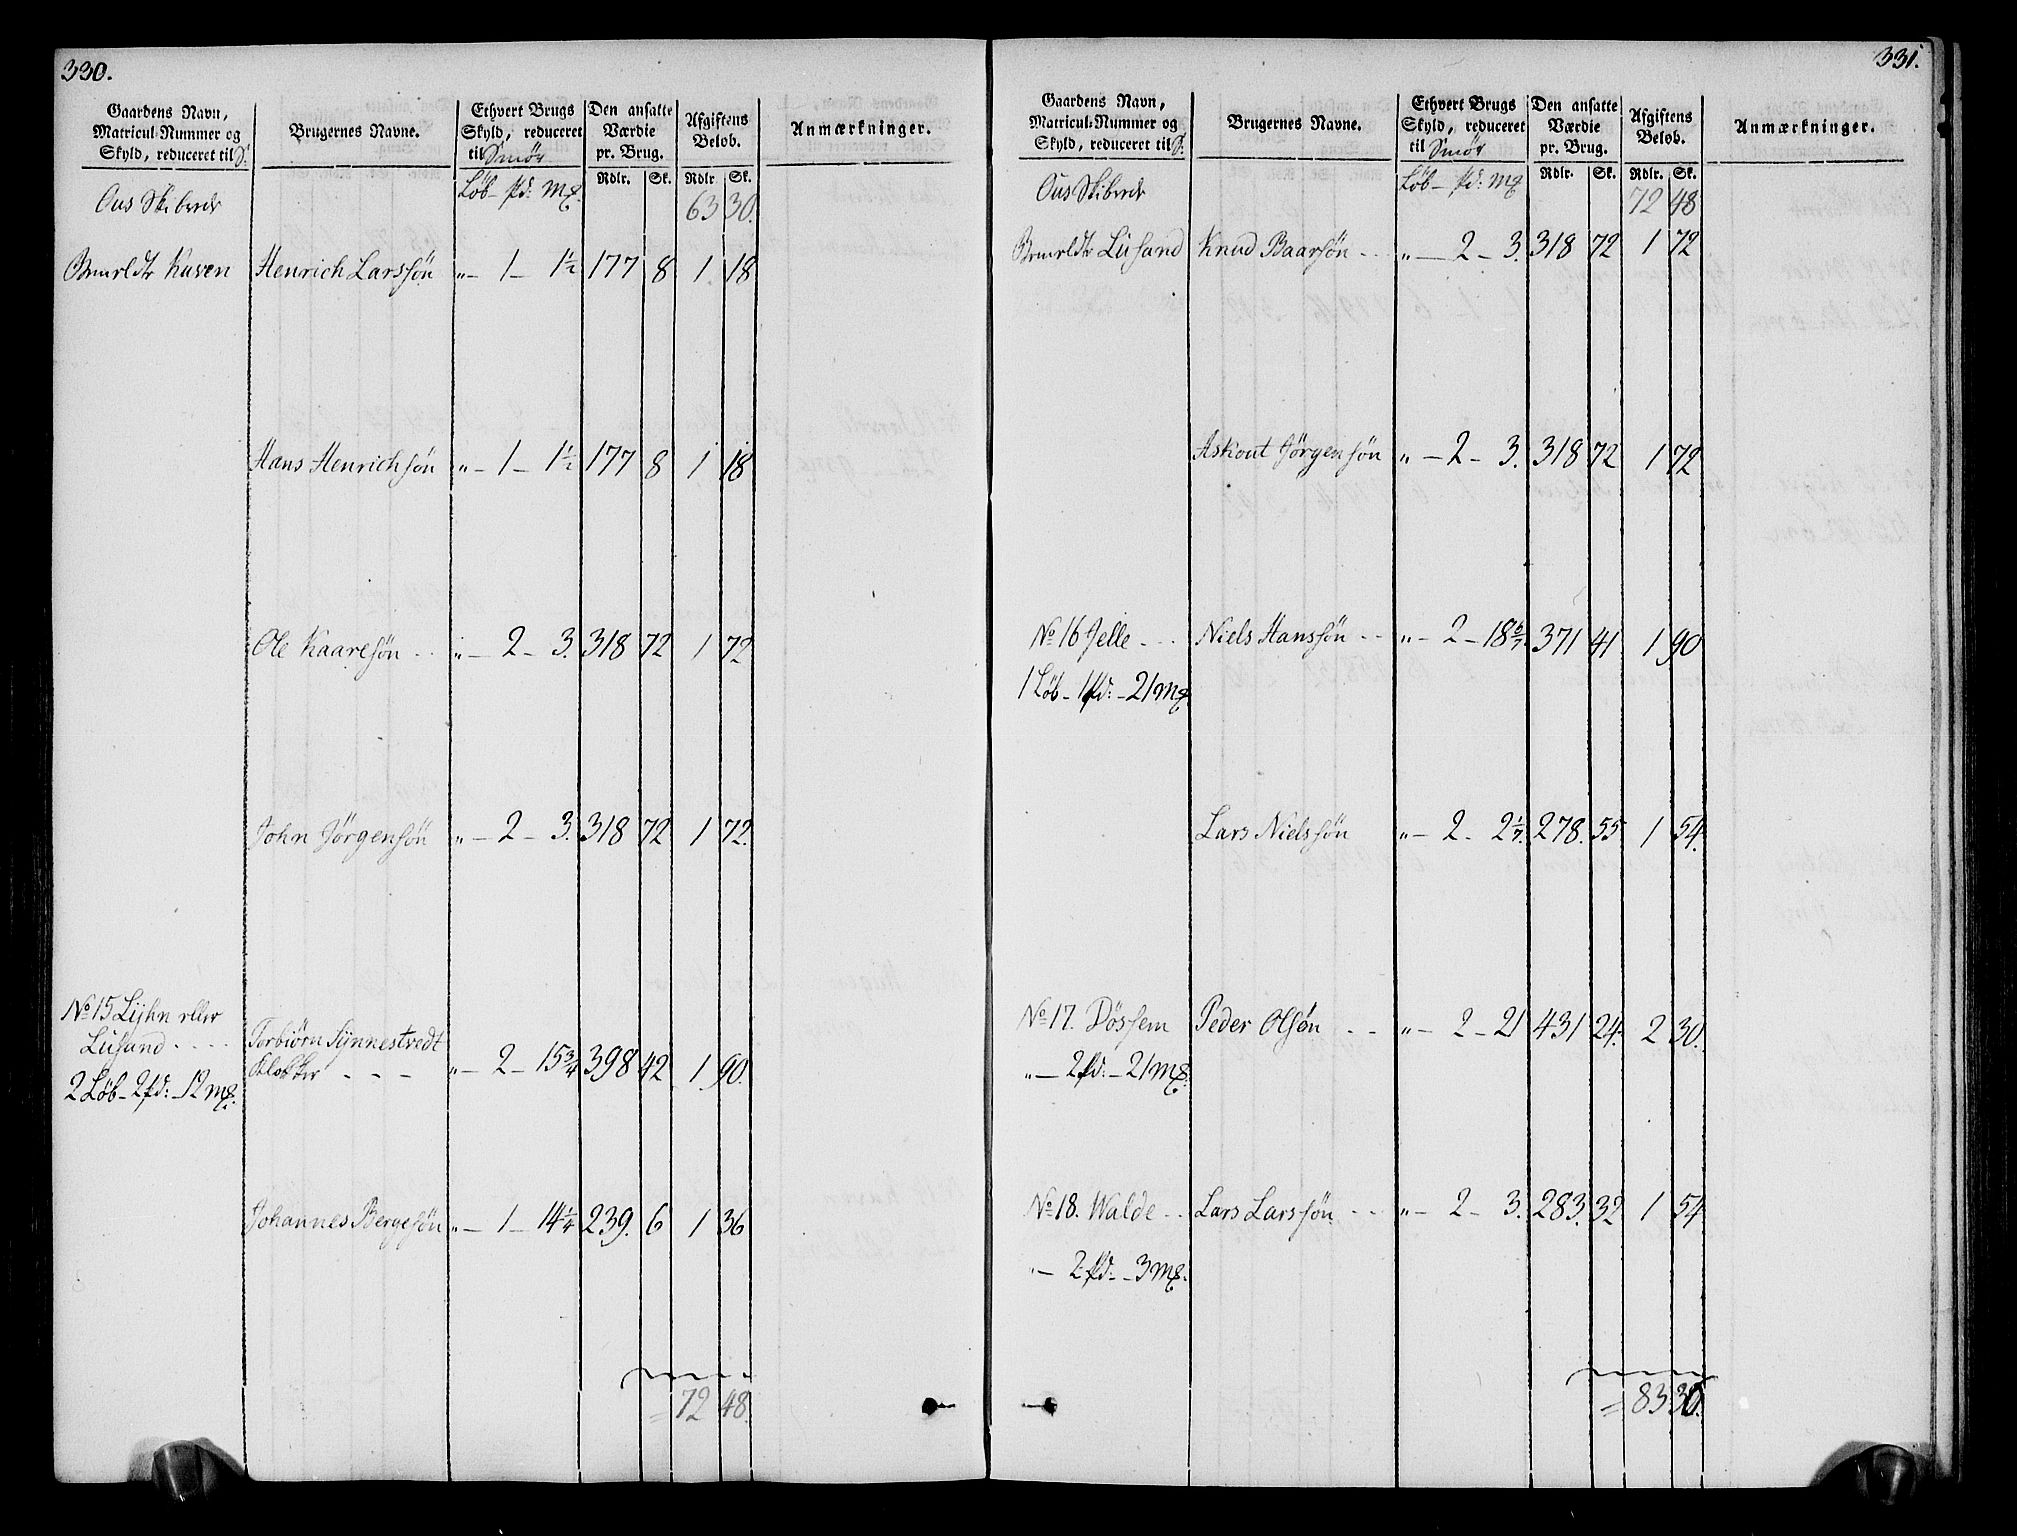 330.
Gaardens Navn, Matricul-Nummer og Skyld, reduceret til S. | Brugernes Navne. | Ethvert Brugs Skyld, reduceret til Smør | Den ansatte Værdie pr. Brug. | Afgiftens Beløb. | Anmærkninger.
Løb - pd: mk. | Rdlr. | Sk. | Rdlr. | Sk.
Ous Skibrede | 63 | 30.
Kaven | Henrich Larssøn | " - 1 - 1½ | 177 | 8 | 1. | 18
Hans Henrichsøn | " - 1 - 1½ | 177 | 8 | 1 | 18
Ole Kaaresøn - - | " - 2 - 3. | 318 | 72 | 1 | 72
John Jørgensøn | " - 2 - 3. | 318 | 72 | 1 | 72.
No 15 Lijhn eller
Lusand - - - -
2 Løb - 2 pd: - 12 mk.
Torbiørn Synnestvedt
Klokker - - - | " - 2 - 15¾ | 398 | 42 | 1 | 90.
Johannes Bergesøn | " - 1 - 14¼ | 239. | 6 | 1 | 36
= 72 | 48.
331.
Gaardens Navn, Matricul-Nummer og Skyld, reduceret til S. | Brugernes Navne. | Ethvert Brugs Skyld, reduceret til Smør | Den ansatte Værdie pr. Brug. | Afgiftens Beløb. | Anmærkninger.
Løb - pd: mk | Rdlr. | Sk. | Rdlr. | Sk.
Ous Skibrede | 72 | 48
Lusand | Knud Baarsøn - - | " - 2 - 3. | 318 | 72 | 1 | 72
Askout Jørgensøn | " - 2 - 3. | 318 | 72 | 1 | 72
No 16 Jelle - - - | Niels Hanssøn - - | " - 2 - 18 6/7. | 371 | 41 | 1 | 90
1 Løb - 1 pd: - 21 mk.
Lars Nielssøn | " - 2 - 2 1/7. | 278. | 55 | 1 | 54.
No 17. Døssem | Peder Olsøn - - | " - 2 - 21 | 431 | 24. | 2 | 30.
" - 2 pd: - 21 mk.
No 18. Walde - - | Lars Larssøn - - | " - 2 - 3. | 283. | 32 | 1 | 54.
" - 2 pd: - 3 mk.
= 83 | 30.